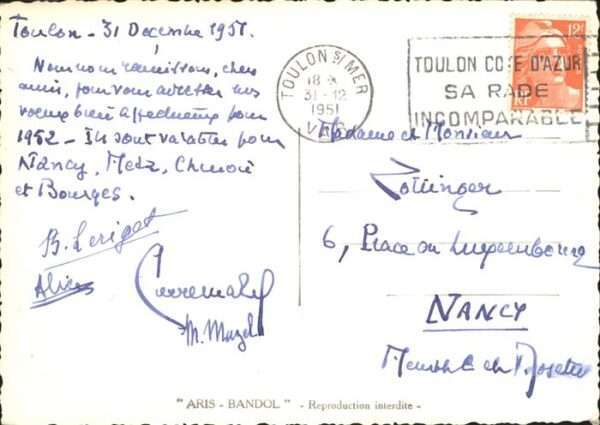 Toulon - 31 Décembre 1951.
Nous nous réunissons, chers
amis, pour vous adresser nos
voeux bien affectueux pour
1952 - Ils sont valables pour
Nancy, Metz,
et Bourges.
B. Leriget
Alice
M. Mazel
TOULON S/ MER
18
31-12
1951
VAR
TOULON COTE D'AZUR
SA RADE
INCOMPARABLE
12F
RF
Madame et Monsieur
6, Place du Luxembourg
NANCY
Meurthe et Moselle
"ARIS - BANDOL" - Reproduction interdite -